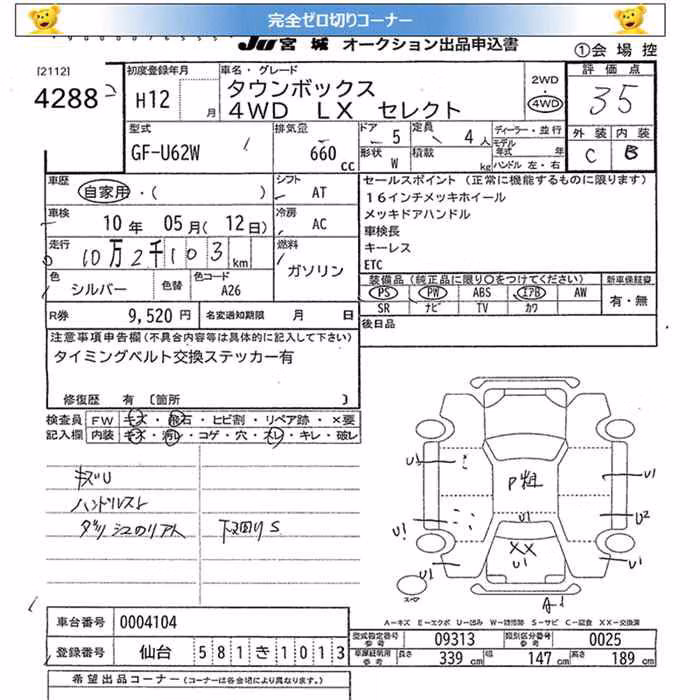 完全ゼロ切りコーナー
JU宮城 オークション出品申込書
①会場控
[2112]
4288
初度登録年月
H12 月
車名・グレード
タウンボックス
4WD LX セレクト
2WD
・
4WD
評価点
35
外装 内装
C B
型式
GF-U62W
排気量
660 cc
ドア 5
定員 4 人
形状 W
積載 kg
ディーラー・並行
モデル年式 年
ハンドル 左・右
車歴
自家用・( )
シフト
AT
車検
10年 05月(12日)
冷房
AC
走行
10万2千103km
燃料
ガソリン
色
シルバー
色替
色コード
A26
R券 9,520円
名変通知期限 月 日
セールスポイント (正常に機能するものに限ります)
16インチメッキホイール
メッキドアハンドル
車検長
キーレス
ETC
装備品(純正品に限り○をつけてください)
PS PW ABS エアB AW
SR ナビ TV カワ
新車保証書
有・無
後日品
注意事項申告欄(不具合内容等は具体的に記入して下さい)
タイミングベルト交換ステッカー有
修復歴 有 〔箇所 〕
検査員記入欄
FW キズ・飛石・ヒビ割・リペア跡・×要
内装 キズ・汚レ・コゲ・穴・スレ・キレ・破レ
キズU
下廻りS
P粗
U1
XX
U1
U1
U1
U1
U1
U2
U1
A-1
スペア
A-キズ E-エクボ U-凹み W-補修跡 S-サビ C-腐食 XX-交換済
車台番号 0004104
登録番号 仙台 581き1013
型式指定番号 参考 09313
類別区分番号 参考 0025
車庫証明用 参考 長さ 339cm 幅 147cm 高さ 189cm
希望出品コーナー(コーナーは各会場により異なります。)